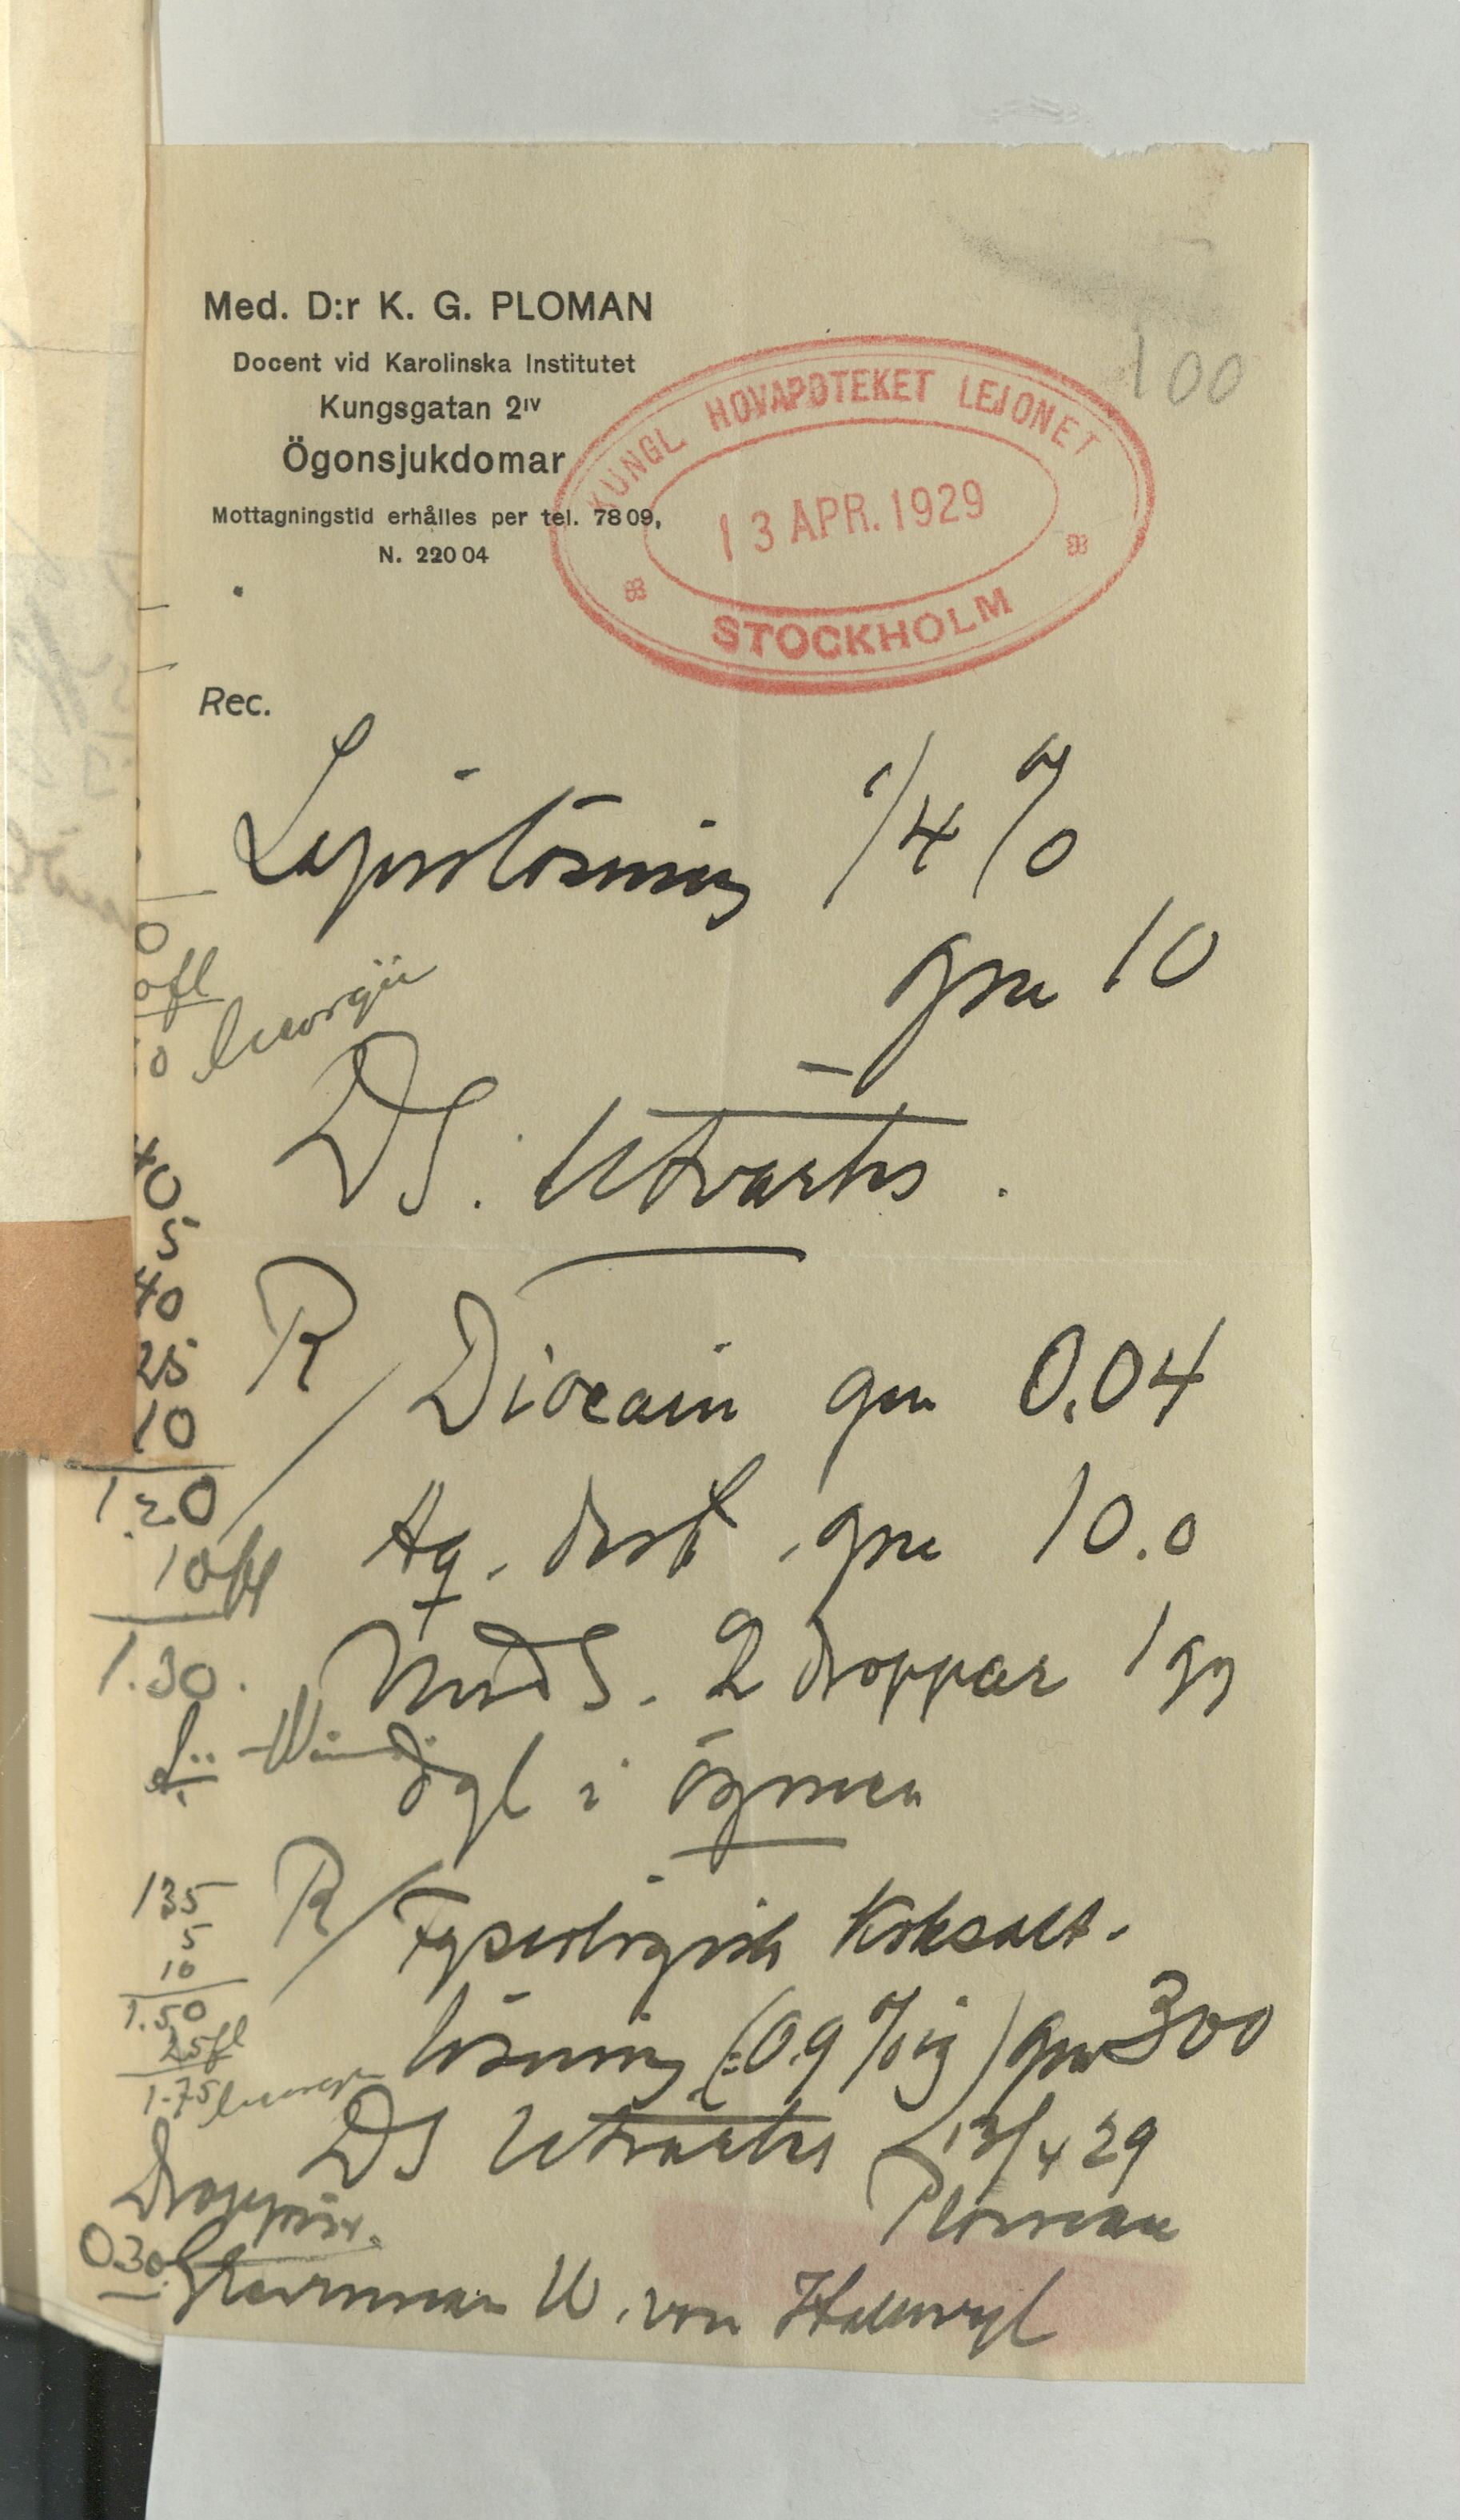 100
Med. D:r K. G. PLOMAN
Docent vid Karolinska Institutet
Kungsgatan 2IV
Ögonsjukdomar
Mottagningstid erhålles per tel. 7809,
N. 22004
KUNGL. HOVAPOTEKET LEJONET
13 APR. 1929
STOCKHOLM
Rec.
Lapislösning 1/4 %
gm 10
DS. Utvärtes.
R/ Diocain gm 0.04
Aq. dest. gm 10.0
MDS. 2 droppar 1 gg
dgl i ögonen
R/ Fysiologisk Koksalt-
lösning (=0.9 %ig) gm 300
DS Utvärtes 13/4 29
Ploman
Grevinnan W. von Hallwyl
0
fl
0
40
5
40
25
10
1.20
10 fl
1.30.
135
5
10
1.50
25 fl
1.75
0.30